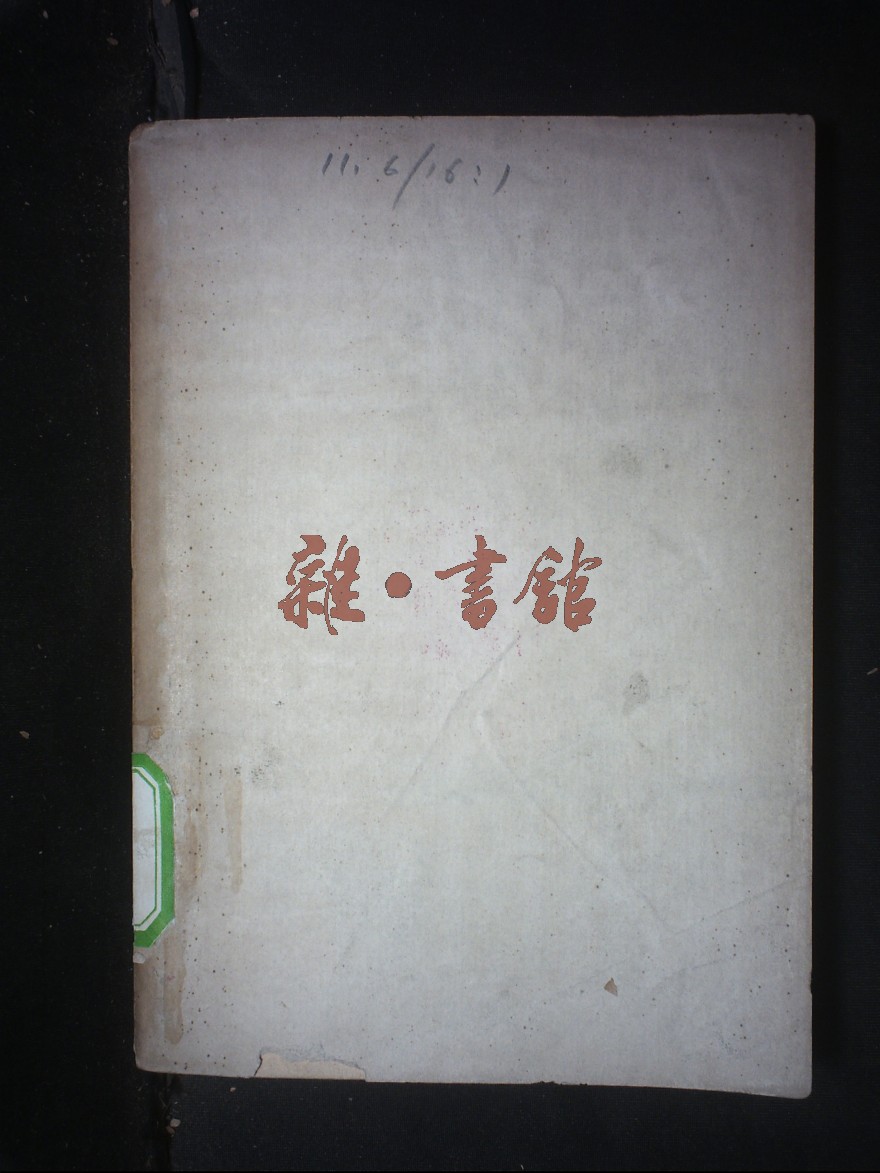 11.6/16:1
雜·書館